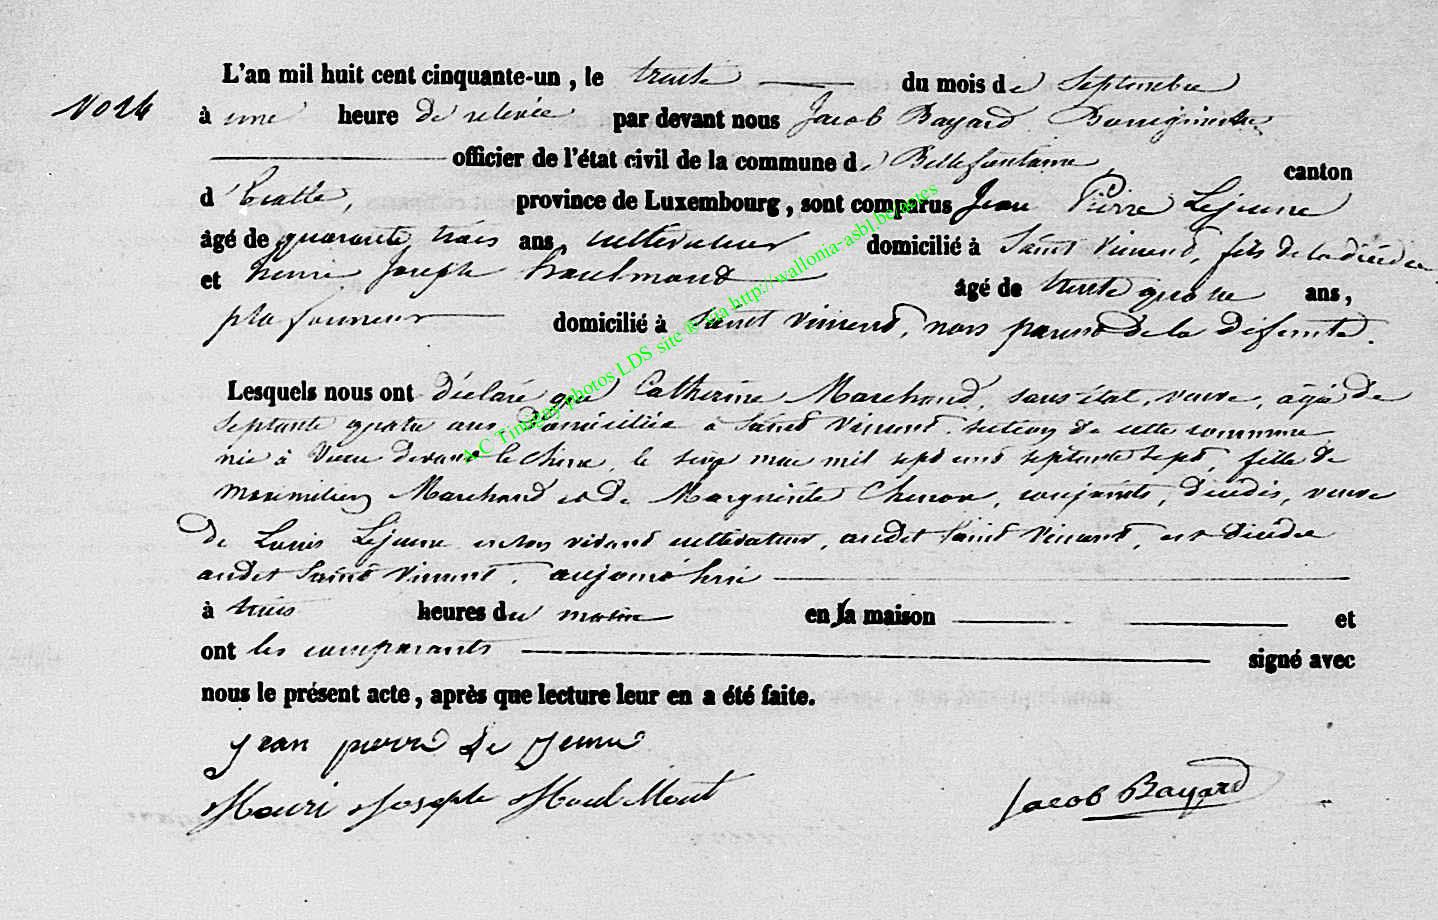 L'an mil huit cent cinquante-un, le trente du mois de Septembre
No 24
à une heure de relevée par devant nous Jacob Bayard Bourgmestre
officier de l'état civil de la commune de Bellefontaine canton
d'Etalle, province de Luxembourg, sont comparus Jean Pierre Lejeune
âgé de quarante trois ans, cultivateur domicilié à Saint Vincent, fils de la décédée
et henri Joseph houlmont âgé de trente quatre ans,
plafonneur domicilié à Saint Vincent, non parent de la défunte.
Lesquels nous ont déclaré que Catherine Marchand, sans état, veuve, âgée de
septante quatre ans, domiciliée à Saint Vincent, section de cette commune
née à Villers devant le mai mil sept cent septante sept, fille de
Maximilien Marchand et de Marguerite conjoints, décédés, veuve
de Louis Lejeune en son vivant cultivateur, audit Saint Vincent, est décédée
audit Saint Vincent, aujourd'hui
à trois heures du matin en la maison et
ont les comparants signé avec
nous le présent acte, après que lecture leur en a été faite.
jean pierre Le Jeune
Henri Joseph Houlmont
Jacob Bayard
A-C Tintigny photos LDS site ® via http://wallonia-asbl.be/actes